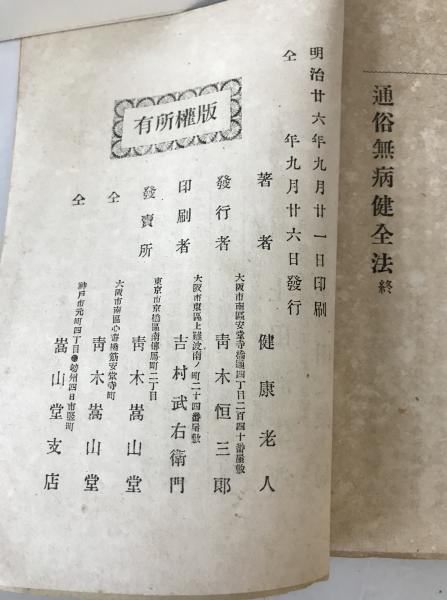 通俗無病健全法終
明治廿六年九月廿一日印刷
仝　年九月廿六日發行
版權所有
著者　健康老人
大阪市南區安堂寺橋通四丁目二百四十番屋敷
發行者　靑木恒三郎
大阪市東區上難波南ノ町二十四番屋敷
印刷者　吉村武右衛門
東京市京橋區南傳馬町二丁目
發賣所　靑木嵩山堂
大阪市南區心齋橋筋安堂寺町
仝　靑木嵩山堂
神戸市元町四丁目 勢州四日市竪町
仝　嵩山堂支店